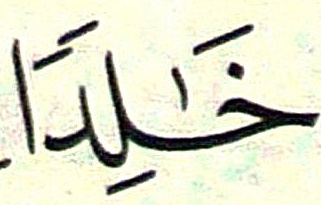 خَٰلِدًا